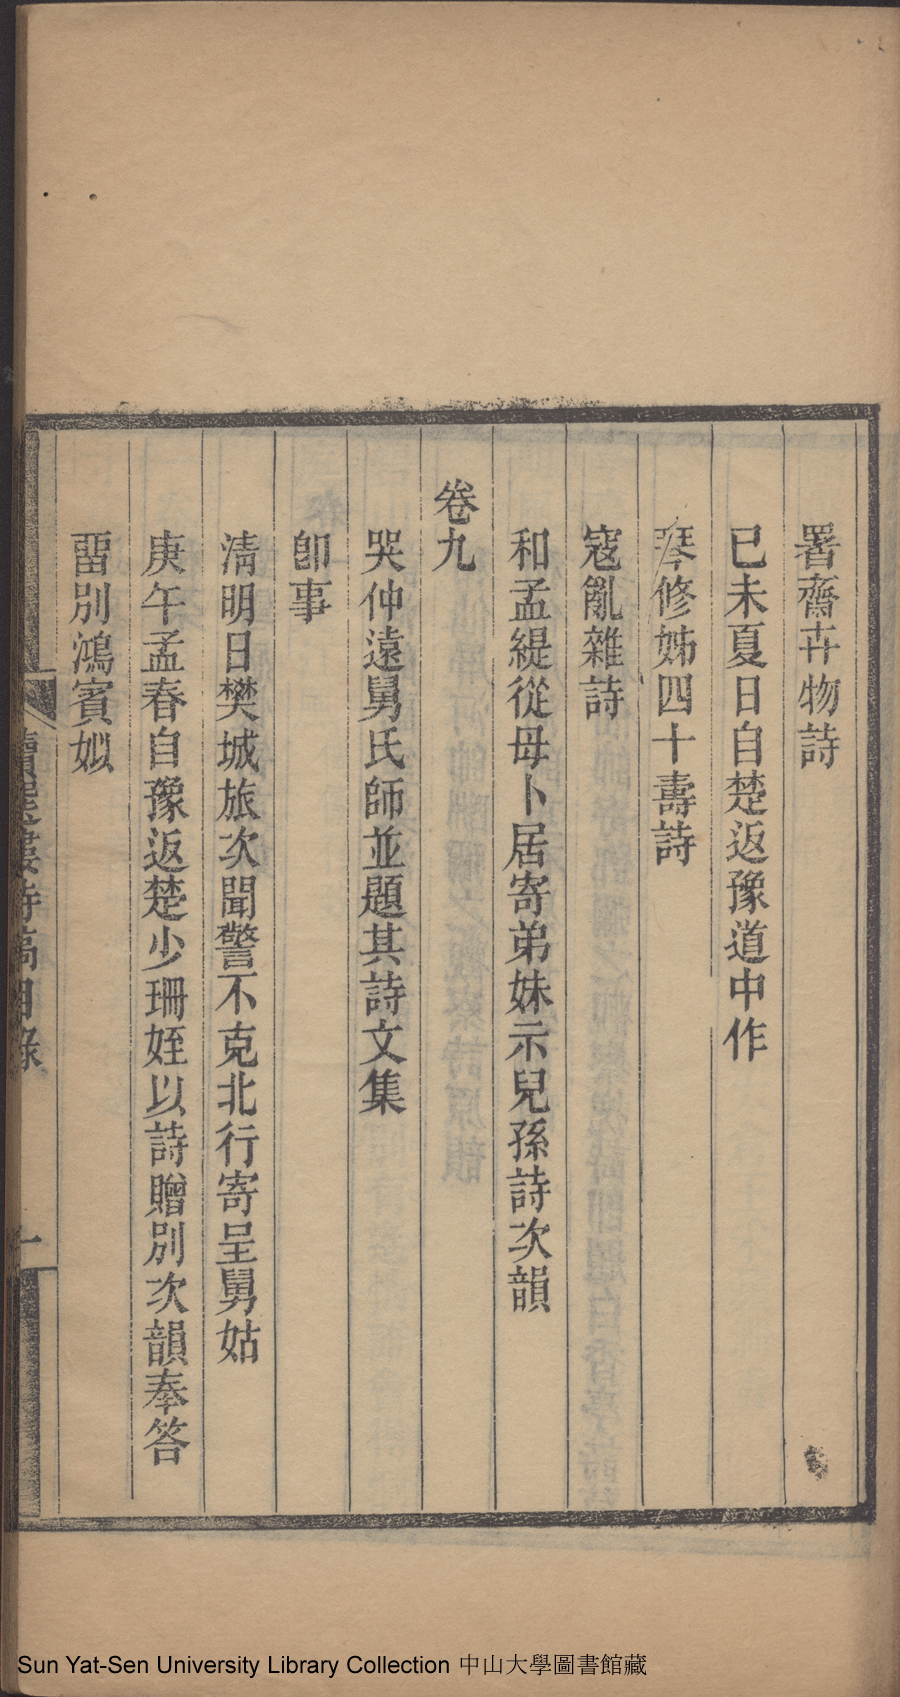 署齋卉物詩
已未夏日自楚返豫道中作
琴修姊四十壽詩
寇亂雜詩
和孟緹從母卜居寄弟妹示兒孫詩次韻
卷九
哭仲遠舅氏師並題其詩文集
卽事
淸明日樊城旅次聞警不克北行寄呈舅姑
庚午孟春自豫返楚少珊姪以詩贈別次韻奉答
畱別鴻賓姒
讀選樓詩稿目錄
Sun Yat-Sen University Library Collection 中山大學圖書館藏